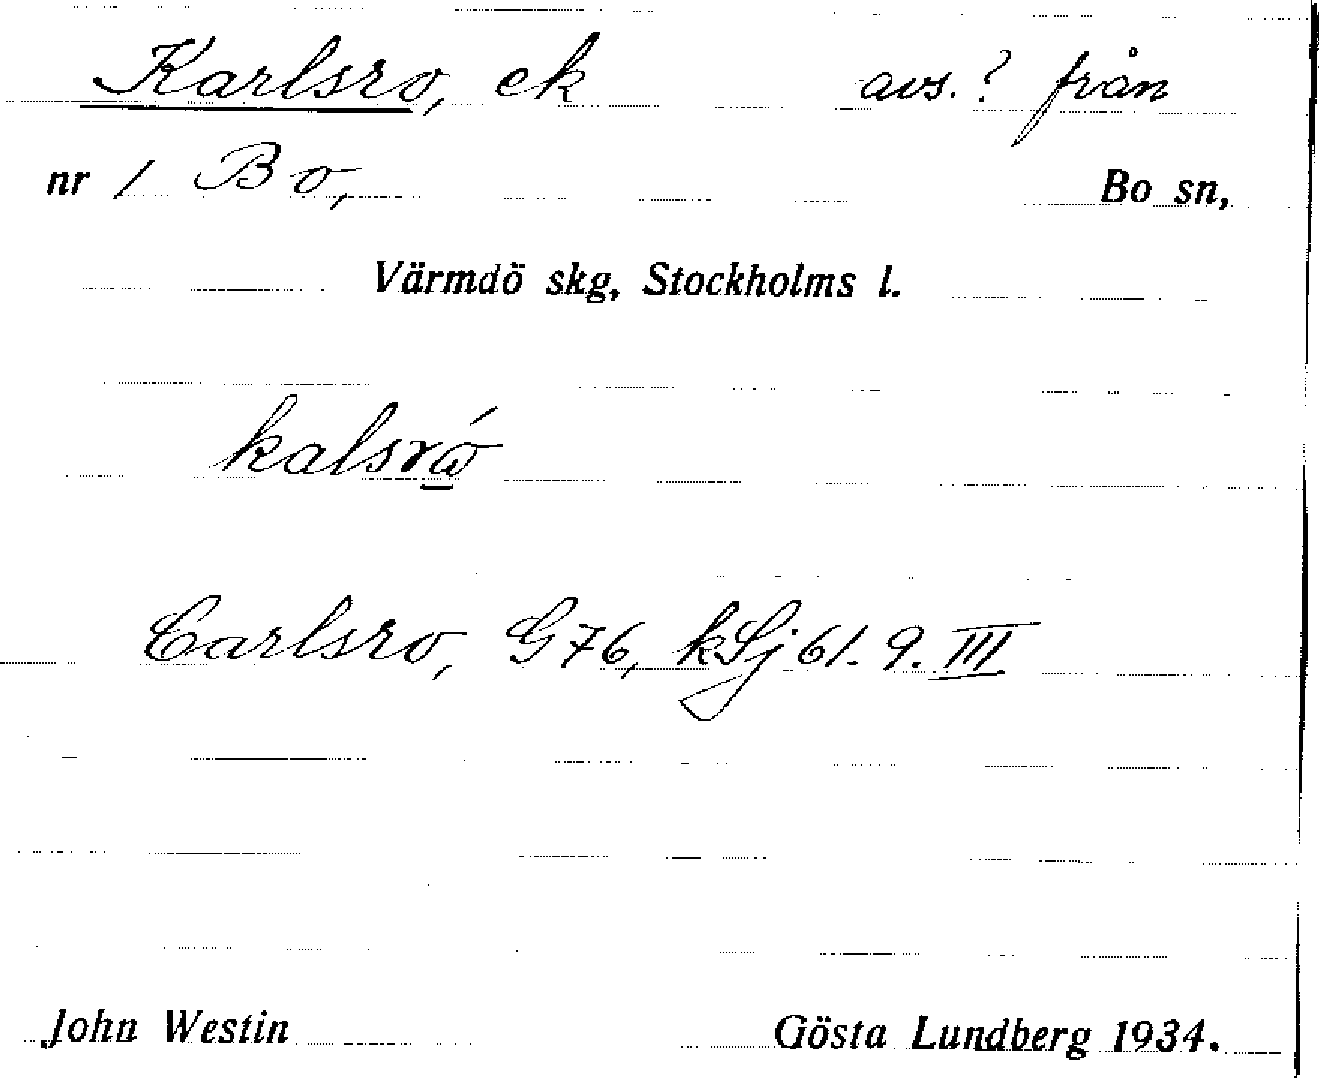 Karlsro, ek avs.? från
nr 1 Bo, Bo sn,
Värmdö skg, Stockholms l.
kalsró
Carlsro, G76, kSj 61. 9. III
John Westin Gösta Lundberg 1934.